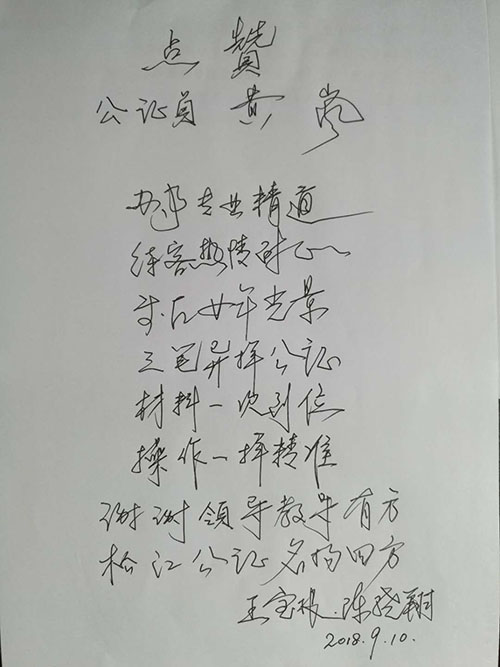 点赞
公证员 黄岚
办事专业精道
待客热情耐心
前后廿年光景
三笔异样公证
材料一次到位
操作一样精准
谢谢领导教导有方
松江公证名扬四方
王宝根·陈晓翔
2018.9.10.